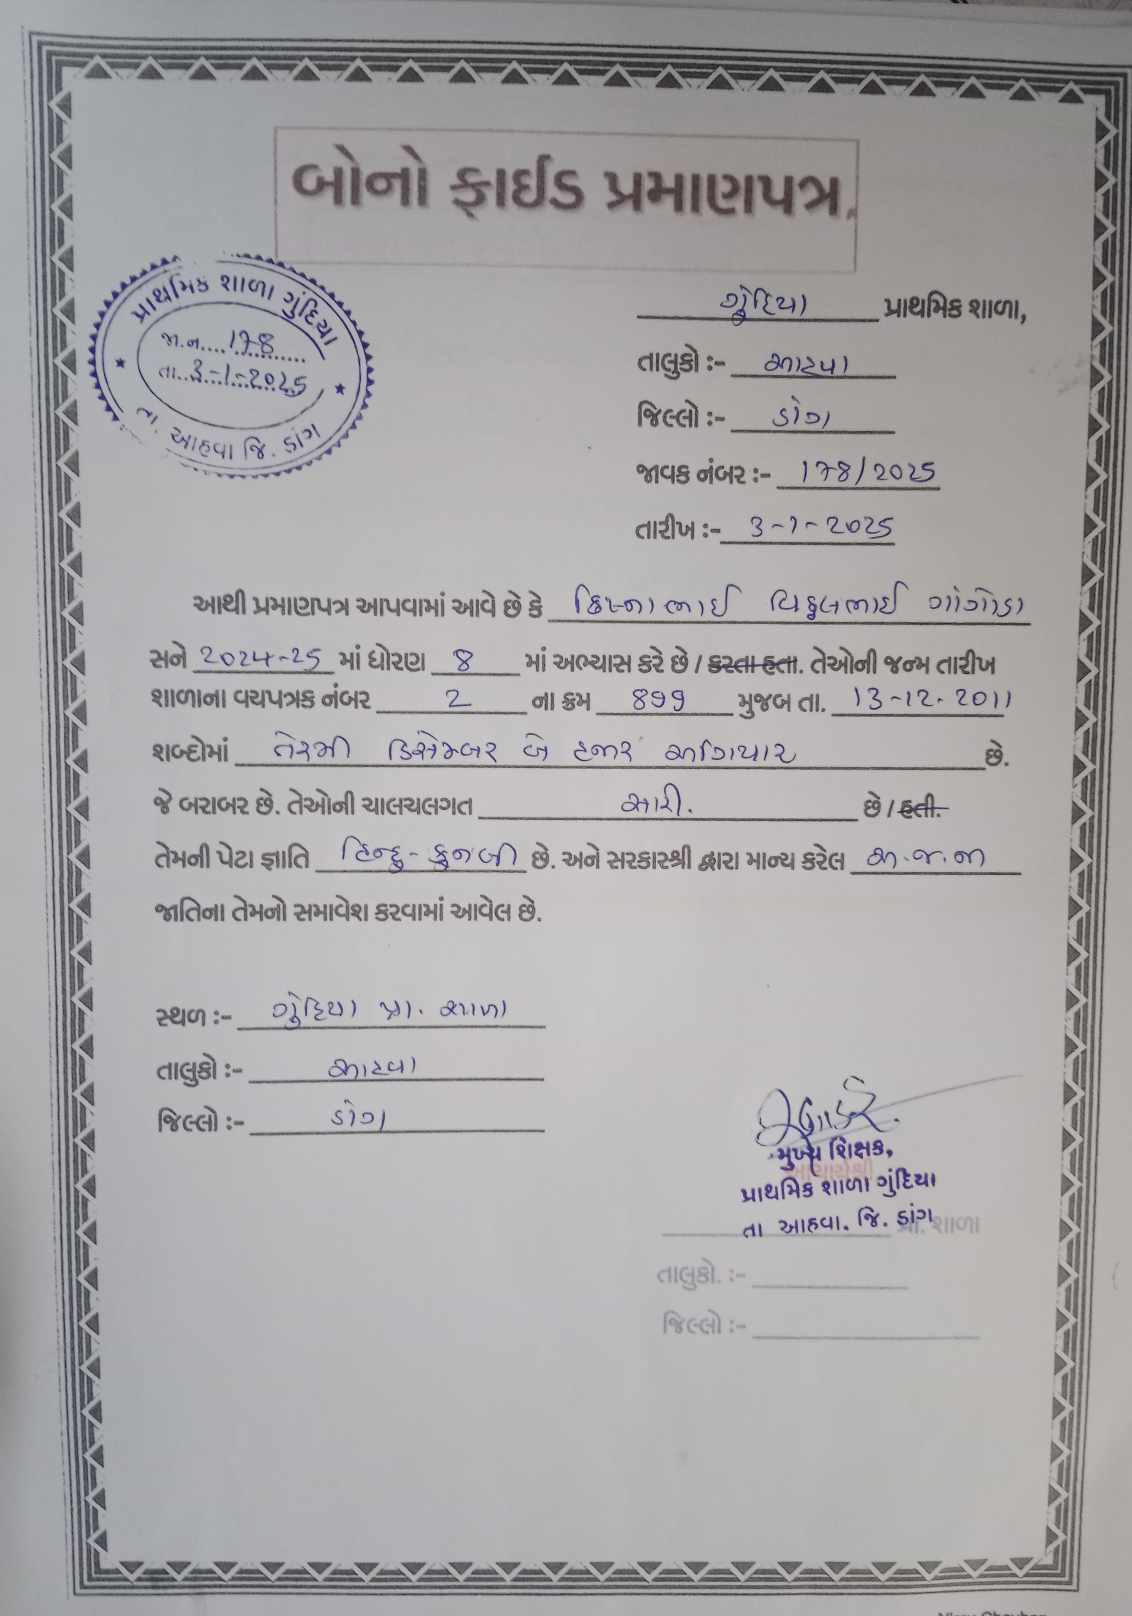 બોનો ફાઈડ પ્રમાણપત્ર.
પ્રાથમિક શાળા ગુંદિયા
જા.ન.... 178
તા... 3-1-2025
તા. આહવા જિ. ડાંગ
ગુંદિયા પ્રાથમિક શાળા,
તાલુકો :- આહવા
જિલ્લો :- ડાંગ
જાવક નંબર :- 178/2025
તારીખ :- 3-1-2025
આથી પ્રમાણપત્ર આપવામાં આવે છે કે ક્રિષ્નાભાઈ ગાંગોડા
સને 2024-25 માં ધોરણ 8 માં અભ્યાસ કરે છે / કરતા હતા. તેઓની જન્મ તારીખ
શાળાના વયપત્રક નંબર 2 ના ક્રમ 899 મુજબ તા. 13-12-2011
શબ્દોમાં તેરમી ડિસેમ્બર બે હજાર અગિયાર છે.
જે બરાબર છે. તેઓની ચાલચલગત સારી. છે / હતી.
તેમની પેટા જ્ઞાતિ હિન્દુ - કુનબી છે. અને સરકારશ્રી દ્વારા માન્ય કરેલ અ.જ.જા
જાતિના તેમનો સમાવેશ કરવામાં આવેલ છે.
સ્થળ :- ગુંદિયા પ્રા. શાળા
તાલુકો :- આહવા
જિલ્લો :- ડાંગ
મુખ્ય શિક્ષક,
આચાર્યશ્રી
પ્રાથમિક શાળા ગુંદિયા
તા આહવા. જિ. ડાંગ
પ્રા. શાળા
તાલુકો. :-
જિલ્લો :-